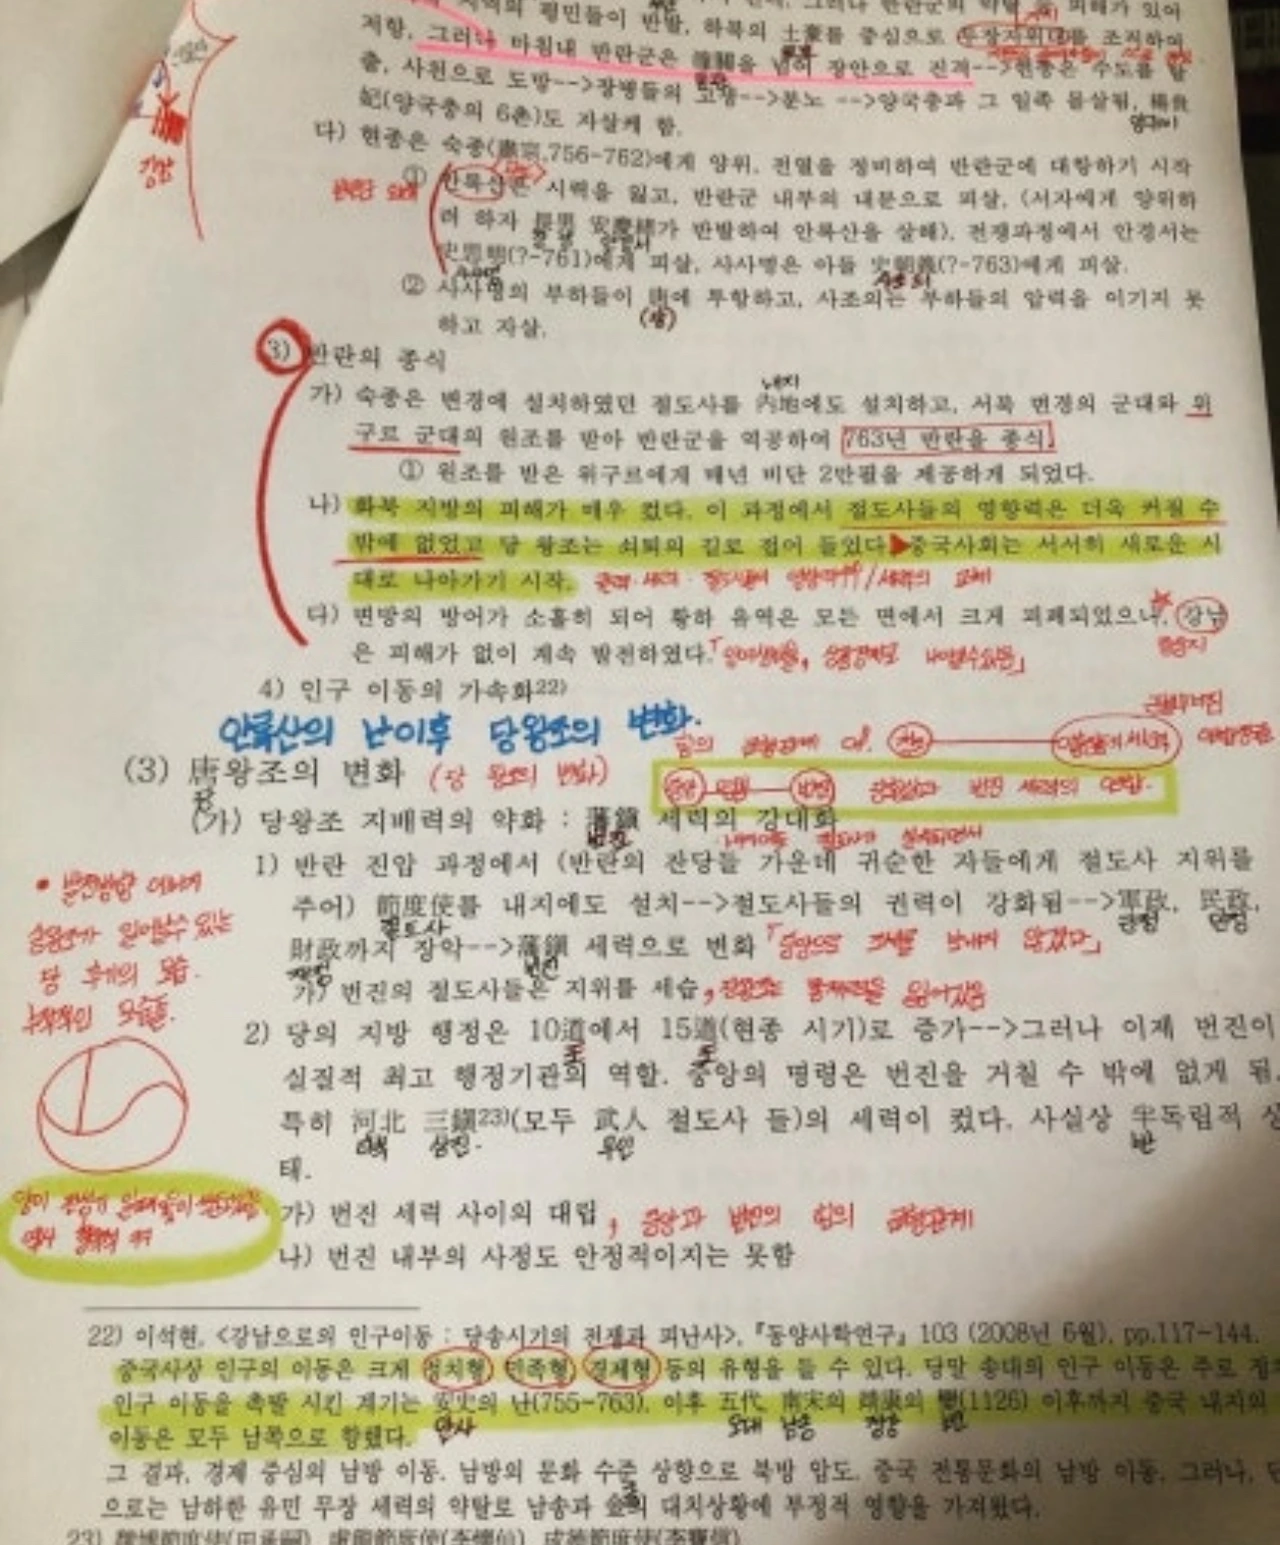 지역의 평민들이 반발, 하북의 土豪를 중심으로 무장자위대를 조직하여
저항, 그러나 마침내 반란군은 潼關을 넘어 장안으로 진격-->현종은 수도를 탈
출, 사천으로 도망-->장병들의 고생-->분노 -->양국충과 그 일족 몰살됨, 楊貴
妃(양국충의 6촌)도 자살케 함.
양귀비
다) 현종은 숙종(肅宗,756-762)에게 양위, 전열을 정비하여 반란군에 대항하기 시작
① 안록산은 시력을 잃고, 반란군 내부의 내분으로 피살, (서자에게 양위하
려 하자 長男 安慶緖가 반발하여 안록산을 살해). 전쟁과정에서 안경서는
장남 안경서
史思明(?-761)에게 피살, 사사명은 아들 史朝義(?-763)에게 피살.
사사명 사조의
② 사사명의 부하들이 唐에 투항하고, 사조의는 부하들의 압력을 이기지 못
하고 자살.
(당)
3) 반란의 종식
내지
가) 숙종은 변경에 설치하였던 절도사를 內地에도 설치하고, 서북 변경의 군대와 위
구르 군대의 원조를 받아 반란군을 역공하여 763년 반란을 종식.
① 원조를 받은 위구르에게 매년 비단 2만필을 제공하게 되었다.
나) 화북 지방의 피해가 매우 컸다. 이 과정에서 절도사들의 영향력은 더욱 커질 수
밖에 없었고 당 왕조는 쇠퇴의 길로 접어 들었다▶중국사회는 서서히 새로운 시
대로 나아가기 시작. 세력의 교체
다) 변방의 방어가 소홀히 되어 황하 유역은 모든 면에서 크게 피폐되었으나, 강남
은 피해가 없이 계속 발전하였다.
4) 인구 이동의 가속화22)
안록산의 난이후 당왕조의 변화.
(3) 唐왕조의 변화 (당 왕조의 변화)
당
번진 세력의 연합.
(가) 당왕조 지배력의 약화 : 藩鎭 세력의 강대화
번진
1) 반란 진압 과정에서 (반란의 잔당들 가운데 귀순한 자들에게 절도사 지위를
주어) 節度使를 내지에도 설치-->절도사들의 권력이 강화됨-->軍政, 民政,
절도사 군정 민정
財政까지 장악-->藩鎭 세력으로 변화
재정 번진
가) 번진의 절도사들은 지위를 세습,
당 후기의 모습.
2) 당의 지방 행정은 10道에서 15道(현종 시기)로 증가-->그러나 이제 번진이
도 도
실질적 최고 행정기관의 역할. 중앙의 명령은 번진을 거칠 수 밖에 없게 됨.
특히 河北 三鎭23)(모두 武人 절도사 들)의 세력이 컸다. 사실상 半독립적 상
하북 삼진. 무인 반
태.
가) 번진 세력 사이의 대립, 중앙과 번진의 힘의 균형관계
나) 번진 내부의 사정도 안정적이지는 못함
22) 이석현, <강남으로의 인구이동 : 당송시기의 전쟁과 피난사>, 『동양사학연구』 103 (2008년 6월), pp.117-144.
중국사상 인구의 이동은 크게 정치형 민족형 경제형 등의 유형을 들 수 있다. 당말 송대의 인구 이동은 주로
인구 이동을 촉발 시킨 계기는 安史의 난(755-763), 이후 五代 南宋의 靖康의 變(1126) 이후까지 중국 내지의
안사 오대 남송 정강 변
이동은 모두 남쪽으로 향했다.
그 결과, 경제 중심의 남방 이동, 남방의 문화 수준 상향으로 북방 압도, 중국 전통문화의 남방 이동, 그러나,
으로는 남하한 유민 무장 세력의 약탈로 남송과 金의 대치상황에 부정적 영향을 가져왔다.
23) 魏博節度使(田承嗣), 盧龍節度使(李懷仙), 成德節度使(李寶信)